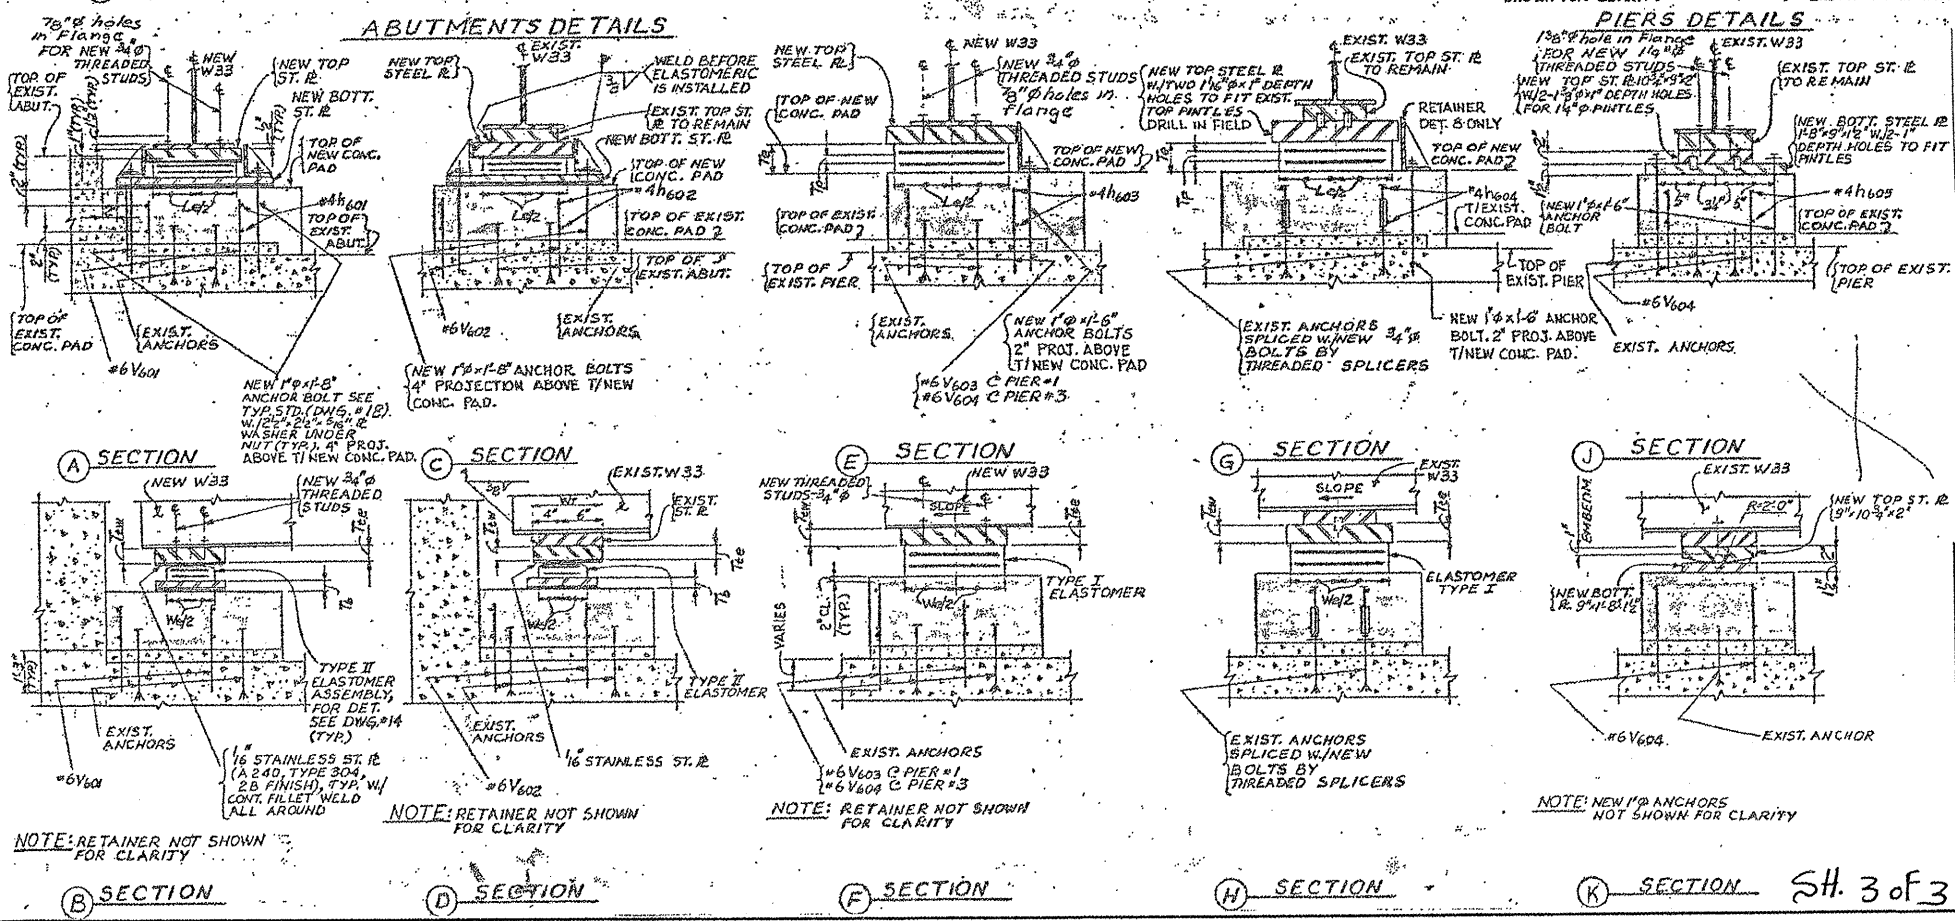 ABUTMENTS DETAILS
PIERS DETAILS
7/8"φ holes
in Flange
FOR NEW 3/4"φ
THREADED
STUDS
NEW
W33
TOP OF
EXIST.
ABUT.
NEW TOP
ST. ℞
NEW BOTT.
ST. ℞
TOP OF
NEW CONC.
PAD
#4h601
TOP OF
EXIST.
ABUT.
2" (TYP.)
TOP OF
EXIST.
CONC. PAD
EXIST.
ANCHORS
#6V601
Le/2
NEW 1"φx1'-8"
ANCHOR BOLT SEE
TYP. STD. (DWG. #18)
W/2½"x2½"x5/16" ℞
WASHER UNDER
NUT (TYP.), 4" PROJ.
ABOVE T/NEW CONC. PAD.
NEW TOP
STEEL ℞
EXIST.
W33
WELD BEFORE
ELASTOMERIC
IS INSTALLED
EXIST. TOP ST.
℞ TO REMAIN
NEW BOTT. ST. ℞
TOP OF NEW
CONC. PAD
#4h602
TOP OF EXIST.
CONC. PAD
TOP OF
EXIST. ABUT.
Le/2
#6V602
EXIST.
ANCHORS
NEW 1"φx1'-8" ANCHOR BOLTS
4" PROJECTION ABOVE T/NEW
CONC. PAD.
NEW TOP
STEEL ℞
NEW W33
NEW 3/4"φ
THREADED STUDS
7/8"φ holes in
flange
TOP OF NEW
CONC. PAD
TOP OF NEW
CONC. PAD
#4h603
Le/2
TOP OF EXIST.
CONC. PAD
TOP OF
EXIST. PIER
EXIST.
ANCHORS
NEW 1"φx1'-6"
ANCHOR BOLTS
2" PROJ. ABOVE
T/NEW CONC. PAD
#6V603 @ PIER #1
#6V604 @ PIER #3
NEW TOP STEEL ℞
W/TWO 1 1/16"φx1" DEPTH
HOLES TO FIT EXIST.
TOP PINTLES
DRILL IN FIELD
EXIST. W33
EXIST. TOP ST. ℞
TO REMAIN
RETAINER
DET. 8 ONLY
TOP OF NEW
CONC. PAD
#4h604
T/EXIST.
CONC. PAD
Le/2
TOP OF
EXIST. PIER
EXIST. ANCHORS
SPLICED W/NEW 3/4"φ
BOLTS BY
THREADED SPLICERS
NEW 1"φx1'-6" ANCHOR
BOLT. 2" PROJ. ABOVE
T/NEW CONC. PAD.
1 3/8"φ hole in Flange
FOR NEW 1¼"φ
THREADED STUDS
NEW TOP ST. ℞ 10¾"x9"x2"
W/2-1 3/8"φx1" DEPTH HOLES
FOR 1¼"φ PINTLES
EXIST. W33
EXIST. TOP ST. ℞
TO REMAIN
NEW BOTT. STEEL ℞
1'-8"x9"x1½" W/2-1"
DEPTH HOLES TO FIT
PINTLES
#4h605
TOP OF EXIST.
CONC. PAD
NEW 1"φx1'-6"
ANCHOR
BOLT
5" 3½" 5"
TOP OF EXIST.
PIER
#6V604
EXIST. ANCHORS
A SECTION
C SECTION
E SECTION
G SECTION
J SECTION
NEW W33
NEW 3/4"φ
THREADED
STUDS
Tew
Tee
Tb
We/2
1'-3"
(TYP.)
TYPE II
ELASTOMER
ASSEMBLY,
FOR DET.
SEE DWG. #14
(TYP.)
EXIST.
ANCHORS
#6V601
1/16" STAINLESS ST. ℞
(A240, TYPE 304,
2B FINISH), TYP. W/
CONT. FILLET WELD
ALL AROUND
NOTE: RETAINER NOT SHOWN
FOR CLARITY
EXIST. W33
EXIST.
ST. ℞
4" 6"
Tew
Tee
Tb
We/2
TYPE II
ELASTOMER
EXIST.
ANCHORS
1/16" STAINLESS ST. ℞
#6V602
NOTE: RETAINER NOT SHOWN
FOR CLARITY
NEW THREADED
STUDS-3/4"φ
NEW W33
SLOPE
Tew
Tee
TYPE I
ELASTOMER
VARIES
2" CL.
(TYP.)
We/2
EXIST. ANCHORS
#6V603 @ PIER #1
#6V604 @ PIER #3
NOTE: RETAINER NOT SHOWN
FOR CLARITY
EXIST.
W33
SLOPE
Tew
Tee
ELASTOMER
TYPE I
We/2
EXIST. ANCHORS
SPLICED W/NEW
BOLTS BY
THREADED SPLICERS
EXIST. W33
R=2'-0"
NEW TOP ST. ℞
9"x10¾"x2"
1" EMBEDM
2"
1½"
NEW BOTT.
℞ 9"x1'-8"x1½"
#6V604
EXIST. ANCHOR
NOTE: NEW 1"φ ANCHORS
NOT SHOWN FOR CLARITY
B SECTION
D SECTION
F SECTION
H SECTION
K SECTION
SH. 3 of 3